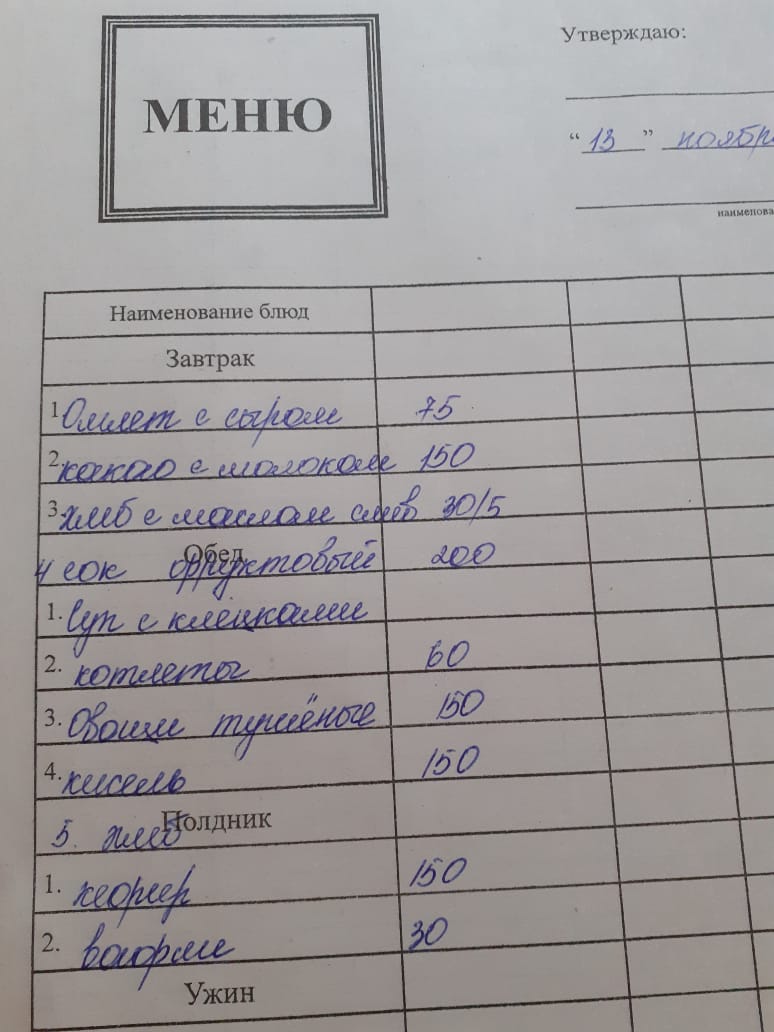 МЕНЮ
Утверждаю:
"13" ноябр
наименова
Наименование блюд
Завтрак
1 Омлет с сыром 75
2 какао с молоком 150
3 хлеб с маслом слив 30/5
Обед
4 сок фруктовый 200
1. Суп с клецками
2. котлеты 60
3. Овощи тушёные 150
4. кисель 150
Полдник
5. хлеб
1. кефир 150
2. вафли 30
Ужин